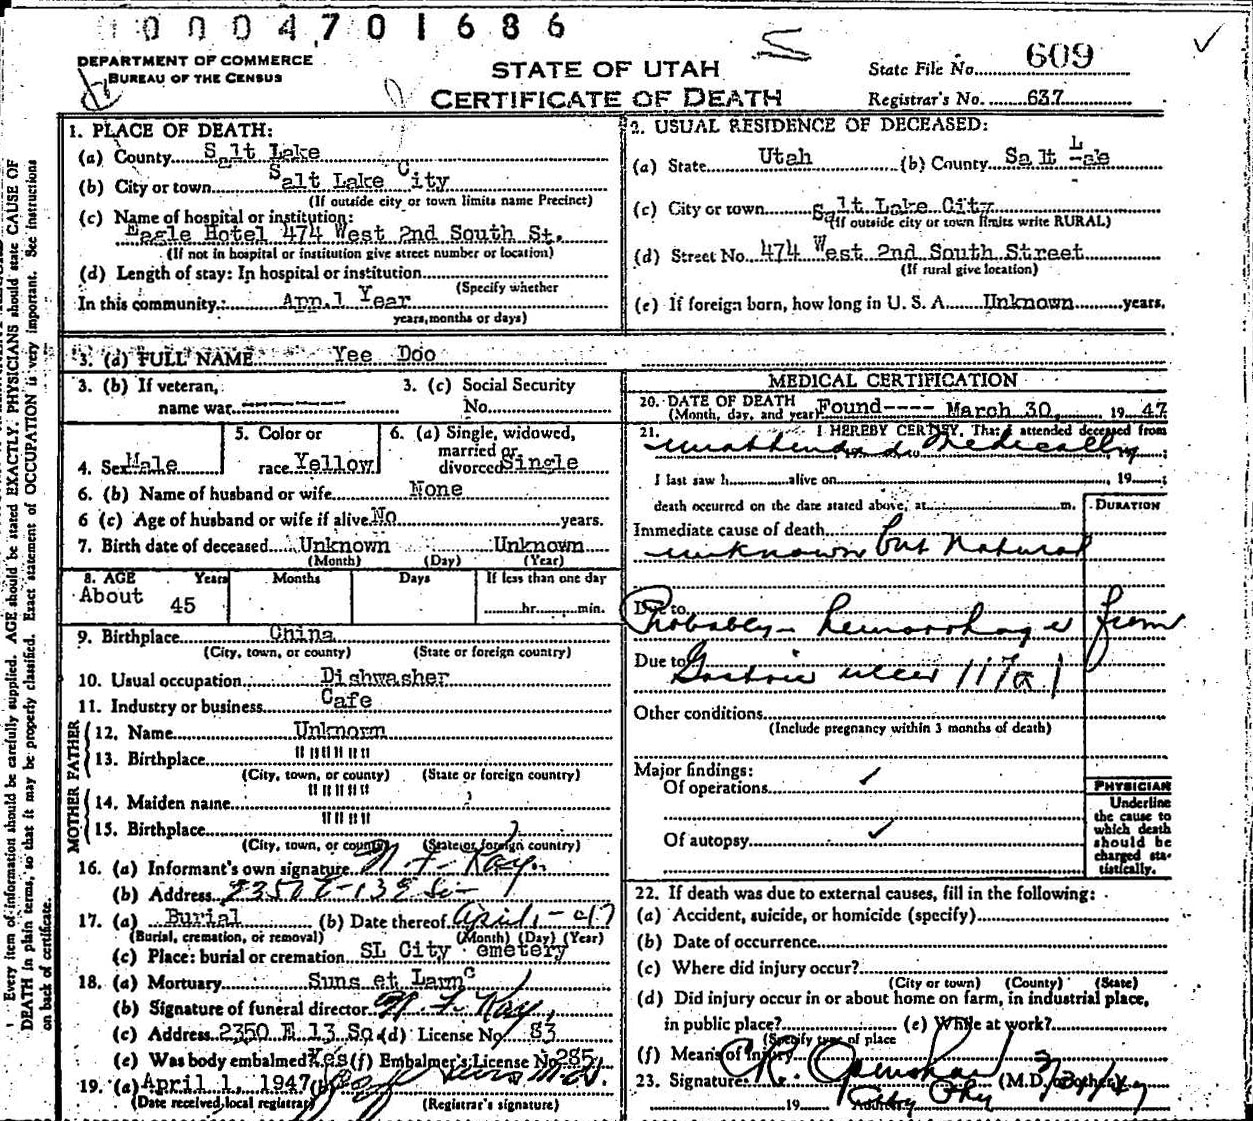 0004701686
DEPARTMENT OF COMMERCE
BUREAU OF THE CENSUS
STATE OF UTAH
CERTIFICATE OF DEATH
State File No. 609
Registrar's No. 637
1. PLACE OF DEATH:
(a) County Salt Lake
(b) City or town Salt Lake City
(If outside city or town limits name Precinct)
(c) Name of hospital or institution:
Eagle Hotel 474 West 2nd South St.
(If not in hospital or institution give street number or location)
(d) Length of stay: In hospital or institution
(Specify whether
In this community: App. 1 Year
years, months or days)
2. USUAL RESIDENCE OF DECEASED:
(a) State Utah (b) County Salt Lake
(c) City or town Salt Lake City
(If outside city or town limits write RURAL)
(d) Street No. 474 West 2nd South Street
(If rural give location)
(e) If foreign born, how long in U. S. A. Unknown years.
3. (a) FULL NAME Yee Doo
3. (b) If veteran, name war
3. (c) Social Security No.
4. Sex Male
5. Color or race Yellow
6. (a) Single, widowed, married or divorced Single
6. (b) Name of husband or wife None
6 (c) Age of husband or wife if alive No years.
7. Birth date of deceased Unknown Unknown
(Month) (Day) (Year)
8. AGE Years Months Days If less than one day
About 45 hr. min.
9. Birthplace China
(City, town, or county) (State or foreign country)
10. Usual occupation Dishwasher
11. Industry or business Cafe
FATHER
12. Name Unknown
13. Birthplace " " " " "
(City, town, or county) (State or foreign country)
MOTHER
14. Maiden name " " " " "
15. Birthplace " " " " "
(City, town, or county) (State or foreign country)
16. (a) Informant's own signature N. F. Kay
(b) Address 2350 E-13 So-
17. (a) Burial (b) Date thereof April 1-47
(Burial, cremation, or removal) (Month) (Day) (Year)
(c) Place: burial or cremation SL City Cemetery
18. (a) Mortuary Suns et Lawn
(b) Signature of funeral director N. F. Kay
(c) Address 2350 E 13 So (d) License No. 83
(e) Was body embalmed? Yes (f) Embalmer's License No. 285
19. (a) April 1, 1947 (b)
(Date received local registrar) (Registrar's signature)
MEDICAL CERTIFICATION
20. DATE OF DEATH
(Month, day, and year) Found---- March 30, 19 47
21. I HEREBY CERTIFY, That I attended deceased from
unattended medically
I last saw h alive on , 19 ;
death occurred on the date stated above, at m.
DURATION
Immediate cause of death
unknown but natural
Due to
Probably- hemorrhage from
Due to
Gastric ulcer 117a1
Other conditions
(Include pregnancy within 3 months of death)
Major findings:
Of operations ✓
Of autopsy ✓
PHYSICIAN
Underline the cause to which death should be charged statistically.
22. If death was due to external causes, fill in the following:
(a) Accident, suicide, or homicide (specify)
(b) Date of occurrence
(c) Where did injury occur?
(City or town) (County) (State)
(d) Did injury occur in or about home on farm, in industrial place,
in public place? (e) While at work?
(Specify type of place
(f) Means of injury
23. Signature: Openshaw (M.D. or other) 3/31/47
19 Address City Phy
Every item of information should be carefully supplied. AGE should be stated EXACTLY. PHYSICIANS should state CAUSE OF
DEATH in plain terms, so that it may be properly classified. Exact statement of OCCUPATION is very important. See instructions
on back of certificate.